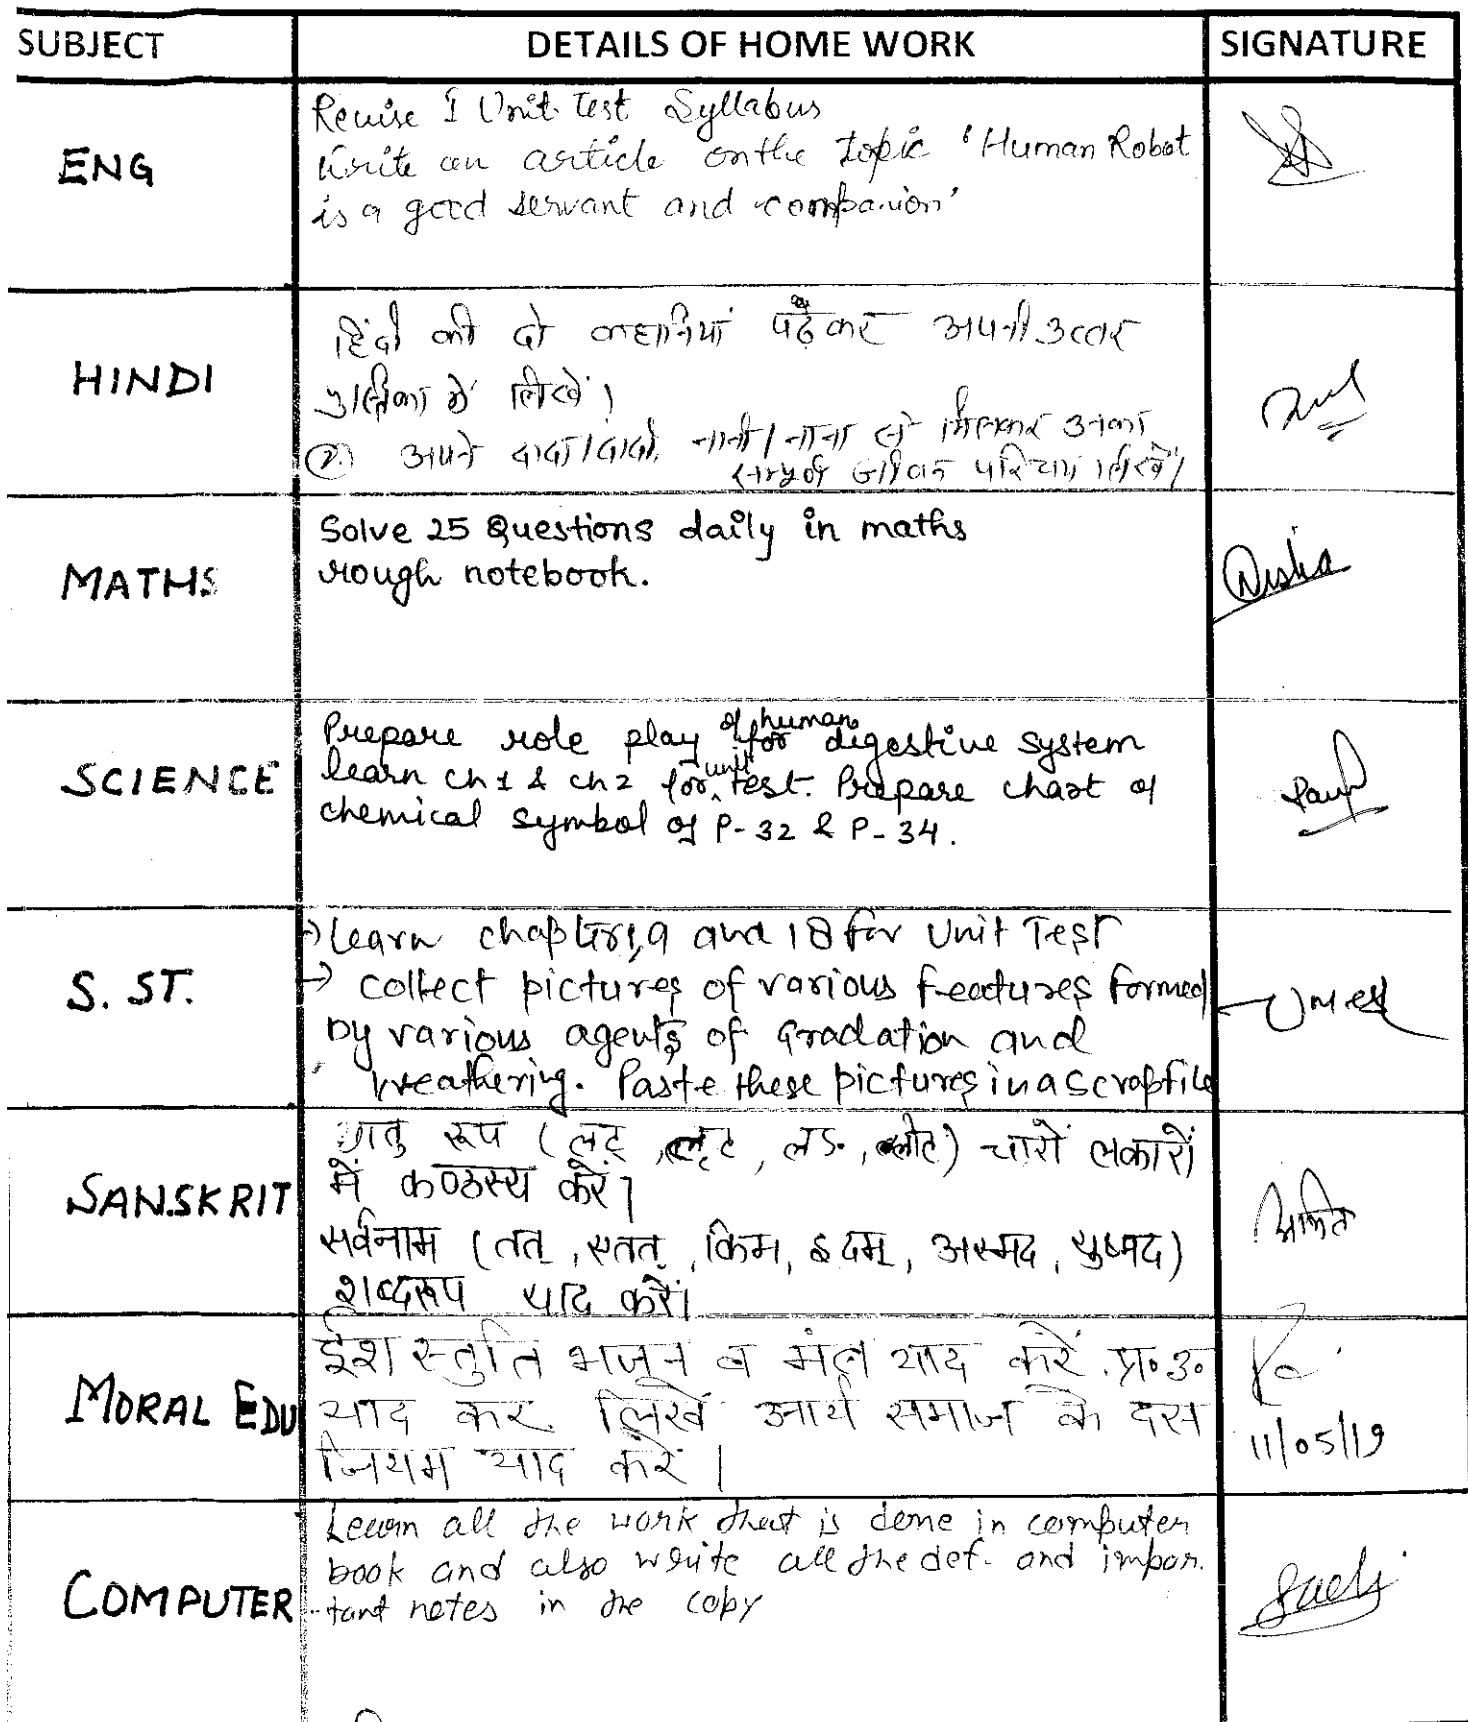 SUBJECT DETAILS OF HOME WORK SIGNATURE
ENG
Revise I Unit Test Syllabus
Write an article on the topic 'Human Robot
is a good servant and companion'
HINDI
हिंदी की दो कहानियां पढ़कर अपनी उत्तर
पुस्तिका में लिखें।
2. अपने दादा/दादी, नानी/नाना से मिलकर उनका
सम्पूर्ण जीवन परिचय लिखें।
MATHS
Solve 25 Questions daily in maths
rough notebook.
Disha
SCIENCE
Prepare role play of human digestive system
learn ch1 & ch2 for unit test. Prepare chart of
chemical symbol of P-32 & P-34.
S. ST.
→ Learn chapter 1,9 and 18 for Unit Test
→ collect pictures of various features formed
by various agents of Gradation and
weathering. Paste these pictures in a scrapfile
Umesh
SANSKRIT
धातु रूप (लट्, लृट, लङ, लोट) चारों लकारों
में कण्ठस्य करें।
सर्वनाम (तत्, एतत्, किम, इदम्, अस्मद, युष्मद)
शब्दरूप याद करें।
MORAL EDU
ईश स्तुति भजन व मंत्र याद करें. प्र॰ उ॰
याद कर लिखें आर्य समाज के दस
नियम याद करें।
11/05/19
COMPUTER
Learn all the work that is done in computer
book and also write all the def. and impor-
tant notes in the copy